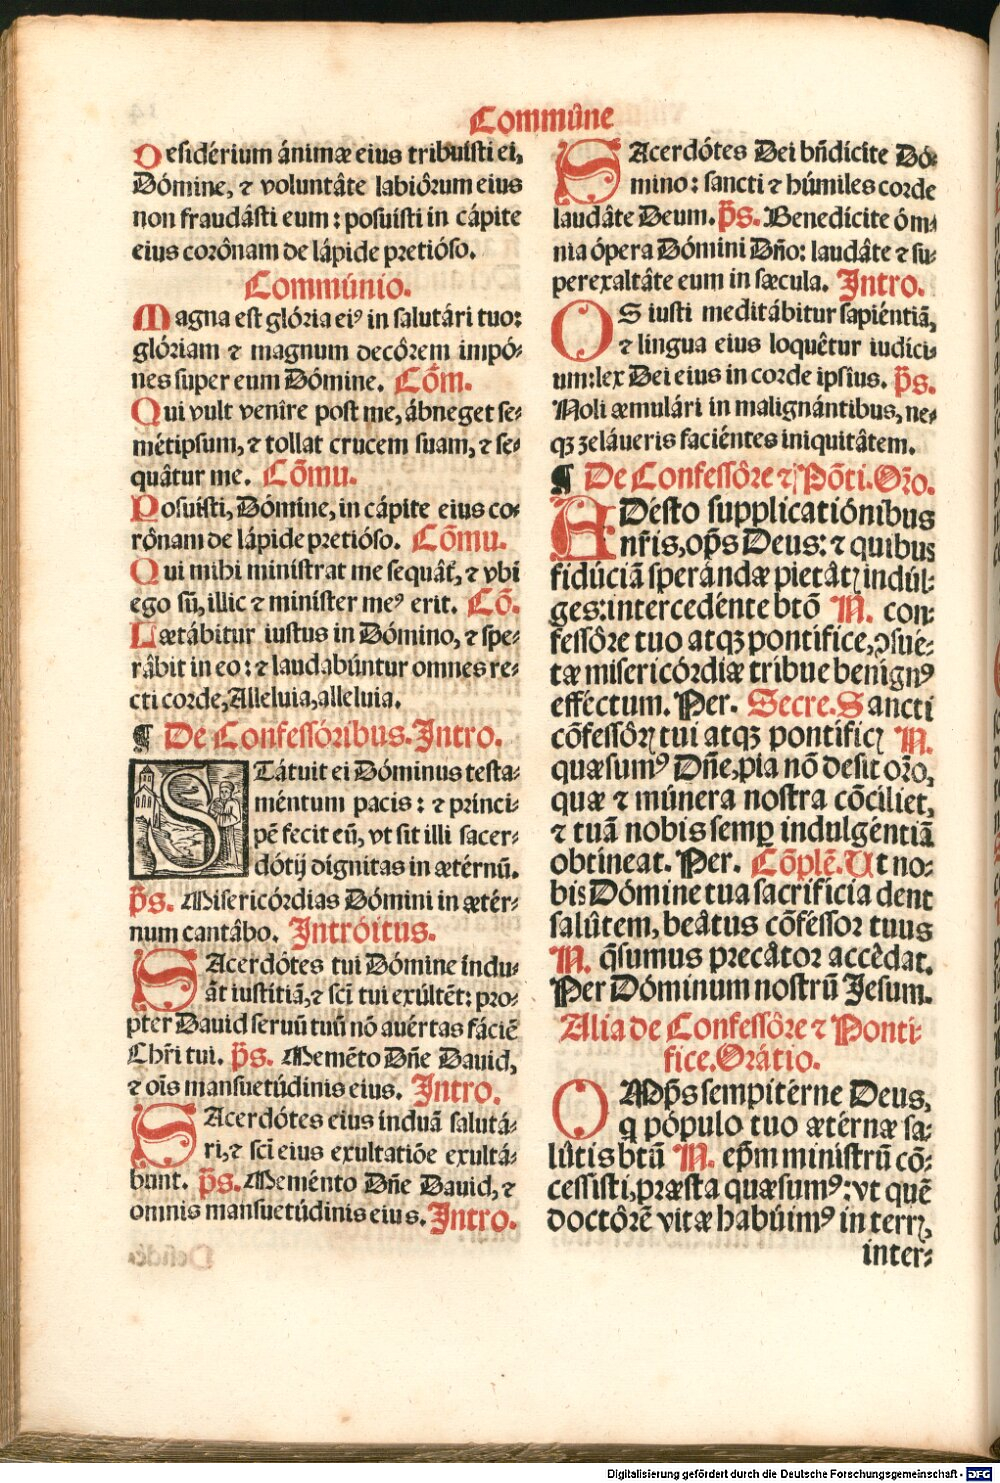 Commûne
Desidérium ánimæ eius tribuísti ei,
Dómine, ⁊ voluntâte labiôrum eius
non fraudásti eum: posuísti in cápite
eius corônam de lápide pretióso.
Commúnio.
Magna est glória ei⁹ in salutári tuo:
glóriam ⁊ magnum decôrem impó⸗
nes super eum Dómine. Cõm.
Qui vult venîre post me, ábneget se⸗
métipsum, ⁊ tollat crucem suam, ⁊ se⸗
quâtur me. Cõmu.
Posuísti, Dómine, in cápite eius co⸗
rônam de lápide pretióso. Cõmu.
Qui mihi ministrat me sequât̃, ⁊ vbi
ego sũ, illic ⁊ miníster me⁹ erit. Cõ.
Lætábitur iustus in Dómino, ⁊ spe⸗
râbit in eo: ⁊ laudabúntur omnes re⸗
cti corde, Alleluia, alleluia.
¶ De Confessóribus. Intro.
STátuit ei Dóminus testa⸗
méntum pacis: ⁊ prínci⸗
pẽ fecit eũ, vt sit illi sacer⸗
dótij dignitas in ætérnũ.
p̃s. Misericórdias Dómini in ætér⸗
num cantâbo. Intróitus.
SAcerdótes tui Dómine índu⸗
ãt iustitiã, ⁊ sc̃i tui exúltẽt: pro⸗
pter Dauid seruũ tuũ nõ auértas fáciẽ
Chr̃i tui. p̃s. Memẽto Dñe Dauid,
⁊ oĩs mansuetúdinis eius. Intro.
SAcerdótes eius índuã salutá⸗
ri, ⁊ sc̃i eius exultatiõe exultá⸗
bunt. p̃s. Memẽnto Dñe Dauid, ⁊
omnis mansuetúdinis eius. Intro.
SAcerdótes Dei bñdícite Dó⸗
mino: sancti ⁊ húmiles corde
laudâte Deum. p̃s. Benedícite óm⸗
nia ópera Dómini Dño: laudâte ⁊ su⸗
perexaltâte eum in sæcula. Intro.
OS iusti meditábitur sapiéntiã,
⁊ lingua eius loquêtur iudici⸗
um: lex Dei eius in corde ipsíus. p̃s.
Noli æmulári in malignántibus, ne⸗
qꝫ zeláueris faciéntes iniquitâtem.
¶ De Confessôre ⁊ Põti. Oro.
ADésto supplicatiónibus
nr̃is, op̃s Deus: ⁊ quibus
fidúciã sperándæ pietâtꝭ indúl⸗
ges: intercedénte btõ N. con⸗
fessôre tuo atqꝫ pontífice, ↄsuê⸗
tæ misericórdiæ tribue benign⁹
efféctum. Per. Secre. Sancti
cõfessôrꝭ tui atqꝫ pontíficꝭ N.
quæsum⁹ Dñe, pia nõ desit orõ,
quæ ⁊ múnera nostra cõcíliet,
⁊ tuã nobis semꝑ indulgéntiã
obtíneat. Per. Cõplẽ. Ut no⸗
bis Dómine tua sacrifícia dent
salûtem, beâtus cõféssor tuus
N. q̃sumus precâtor accêdat.
Per Dóminum nostrũ Jesum.
Alia de Confessôre ⁊ Ponti⸗
fice. Orátio.
OMp̃s sempitérne Deus,
q pópulo tuo ætérnæ sa⸗
lûtis btũ N. ep̃m minístrũ cõ⸗
cessísti, præsta quæsum⁹: vt quẽ
doctôrẽ vitæ habúim⁹ in terrꝭ,
inter⸗
Digitalisierung gefördert durch die Deutsche Forschungsgemeinschaft - DFG